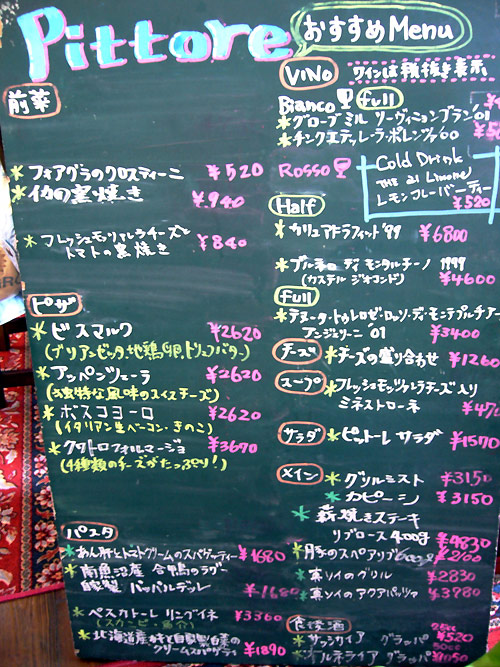 Pittore
おすすめMenu
前菜
*フォアグラのクロスティーニ ¥520
*イカの窯焼き ¥940
*フレッシュモッツァレラチーズと
トマトの窯焼き ¥840
ピザ
*ビスマルク ¥2620
*アッペンツェーラ ¥2620
(独特な風味のスイスチーズ)
*ボスコヨーロ ¥2620
(イタリアン生ベーコン・きのこ)
*クワトロフォルマージョ ¥3670
(4種類のチーズがたっぷり!)
パスタ
*あん肝とトマトクリームのスパゲッティー ¥1680
*南魚沼産 合鴨のラグー
自家製 パッパルデッレ ¥1680
*ペスカトーレ リングイネ ¥3360
(スカンピ・魚介)
*北海道産
クリームスパゲッティ ¥1890
VINO
ワインは税抜き表示
Bianco full
*グローブミル ソーヴィニョンブラン 01
*チンクエテッレーラ・ポレンツァ 00
Rosso
Cold Drink
THE al Limone
レモンフレーバーティー
¥520
Half
*カリュアトラフィット '99 ¥6800
*ブルネロ ディ モンタルチーノ 1999
(カステル ジオコンド) ¥4600
full
*テヌータ・トゥロゼ・ロッソ・ディ・モンテプルチアー
アンジェリーニ '01 ¥3400
チーズ *チーズの盛り合わせ ¥1260
スープ *フレッシュモッツァレラチーズ入り
ミネストローネ ¥47
サラダ *ピットーレ サラダ ¥1570
メイン *グリルミスト ¥3150
*カピーニ ¥3150
*薪焼きステーキ
リブロース 400g ¥4830
*骨付のスペアリブ
*真ソイのグリル ¥2830
*真ソイのアクアパッツァ ¥3780
食後酒 25cc
*サッシカイア グラッパ ¥520
50cc
*オルネライア グラッパ ¥1050